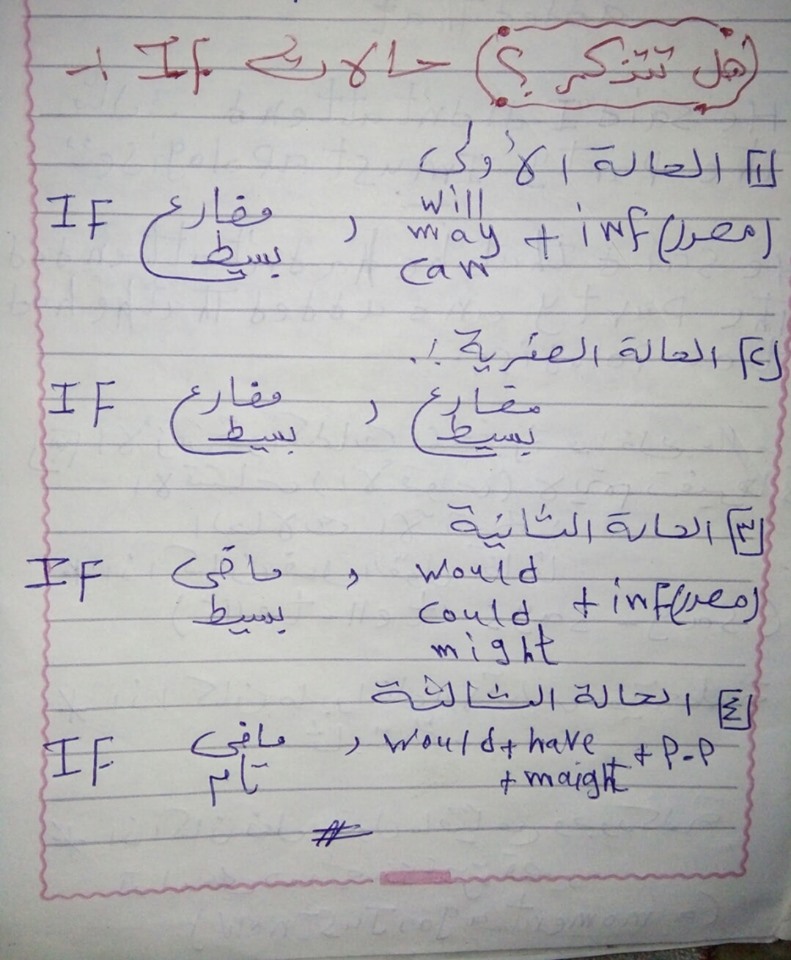 هل تتذكر ؟ حالات IF +
[١] الحالة الأولى
IF مضارع بسيط , will may can + inf (مصدر)
[٢] الحالة الصفرية !.
IF مضارع بسيط , مضارع بسيط
[٣] الحالة الثانية
IF ماضى بسيط , would could might + inf (مصدر)
[٤] الحالة الثالثة
IF ماضى تام , would + have + maight + P.P
#